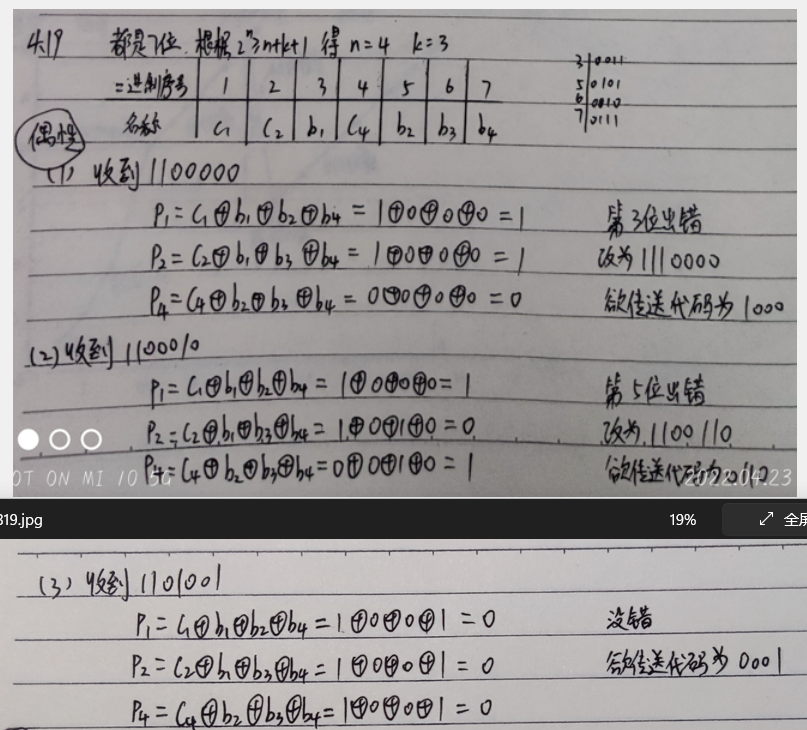 4.19 都是7位 根据 2ᵏ≥n+k+1 得 n=4 k=3
二进制序号 1 2 3 4 5 6 7
名称 C₁ C₂ b₁ C₄ b₂ b₃ b₄
3 0011
5 0101
6 0010
7 0111
偶性
(1) 收到 1100000
P₁=C₁⊕b₁⊕b₂⊕b₄=1⊕0⊕0⊕0=1 第3位出错
P₂=C₂⊕b₁⊕b₃⊕b₄=1⊕0⊕0⊕0=1 改为 1110000
P₄=C₄⊕b₂⊕b₃⊕b₄=0⊕0⊕0⊕0=0 欲传送代码为 1000
(2) 收到 1100010
P₁=C₁⊕b₁⊕b₂⊕b₄=1⊕0⊕0⊕0=1 第5位出错
P₂=C₂⊕b₁⊕b₃⊕b₄=1⊕0⊕1⊕0=0 改为 1100110
P₄=C₄⊕b₂⊕b₃⊕b₄=0⊕0⊕1⊕0=1 欲传送代码为 0110
OT ON MI 10 5G 2022.04.23
319.jpg 19% 全屏
(3) 收到 1101001
P₁=C₁⊕b₁⊕b₂⊕b₄=1⊕0⊕0⊕1=0 没错
P₂=C₂⊕b₁⊕b₃⊕b₄=1⊕0⊕0⊕1=0 欲传送代码为 0001
P₄=C₄⊕b₂⊕b₃⊕b₄=1⊕0⊕0⊕1=0